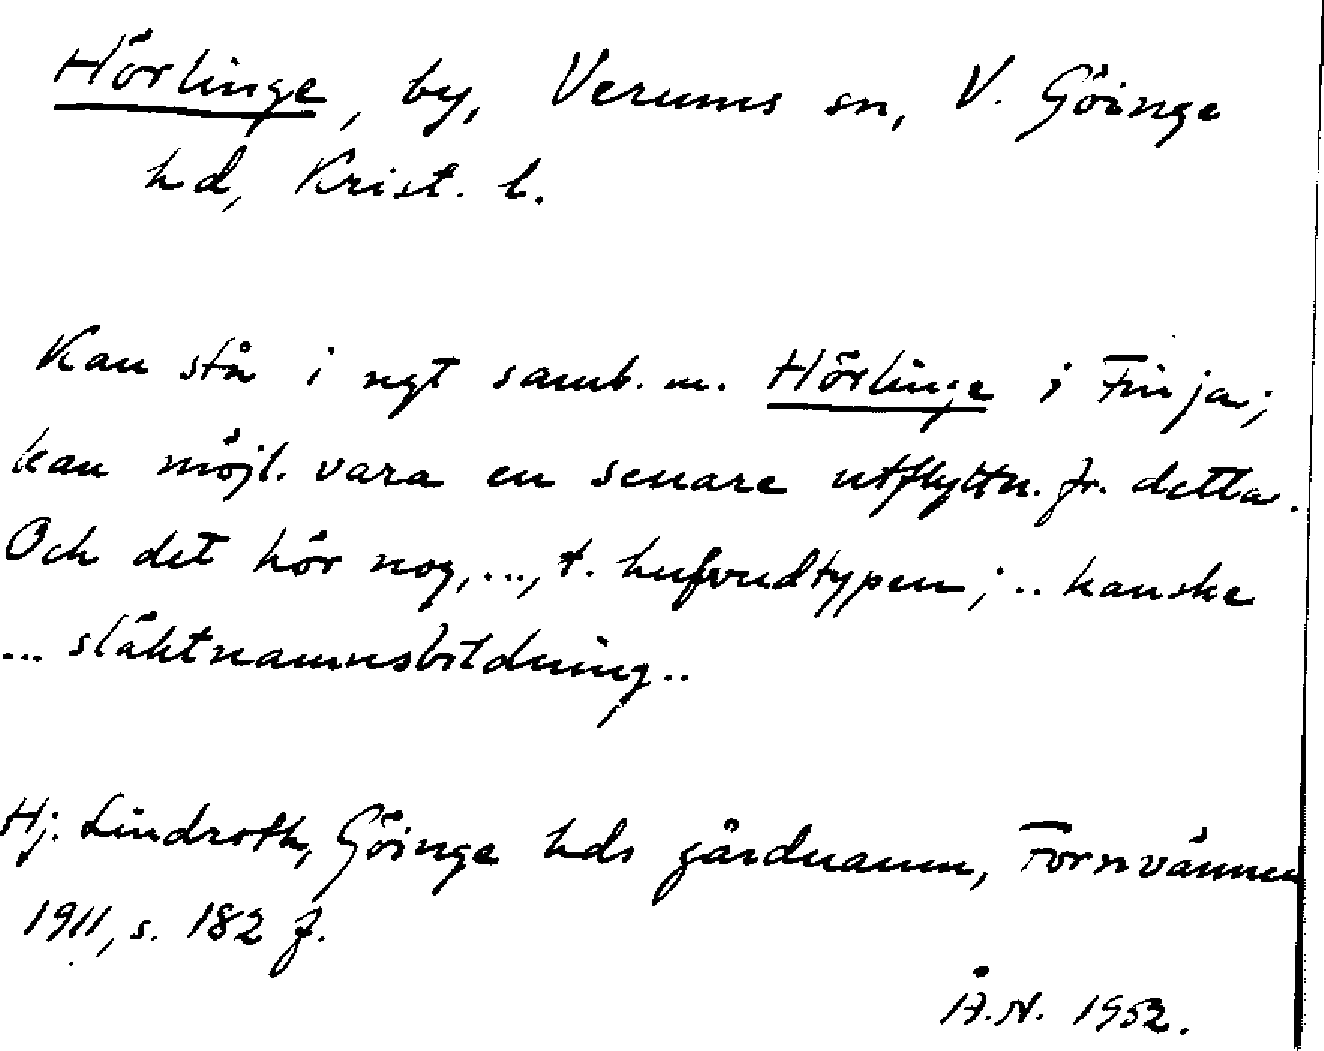 Hörlinge, by, Verums sn, V. Göinge
hd, Krist. l.
Kan stå i ngt samb. m. Hörlinge i Finja;
kan möjl. vara en senare utflyttn. fr. detta.
Och det hör nog, ..., t. hufvudtypen; .. kanske
... släktnamnsbildning..
Hj. Lindroth, Göinge hds gårdnamn, Fornvännen
1911, s. 182 f.
Å.N. 1952.